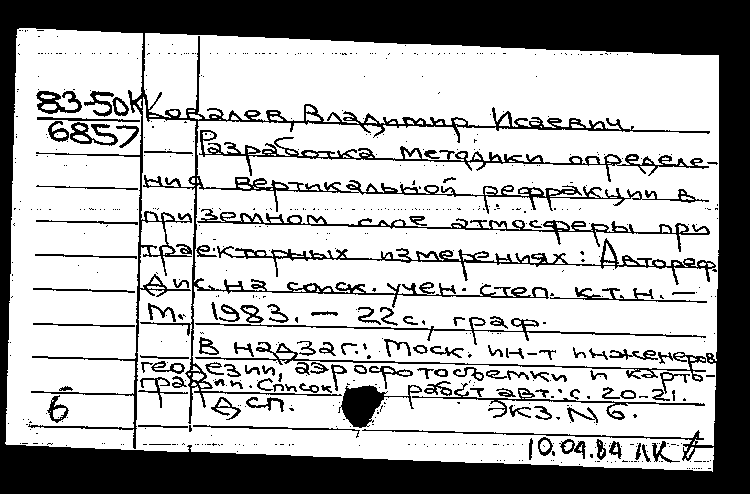 83-50К Ковалев, Владимир Исаевич.
6857
Разработка методики определе-
ния вертикальной рефракции в
приземном слое атмосферы при
траекторных измерениях: Автореф.
дис. на соиск. учен. степ. к.т.н. —
М. 1983. — 22 с., граф.
В надзаг.: Моск. ин-т инженеров
геодезии, аэрофотосъемки и карто-
графии. Список работ авт.: с. 20-21.
б Дсп. Экз. N 6.
10.04.84 ЛК